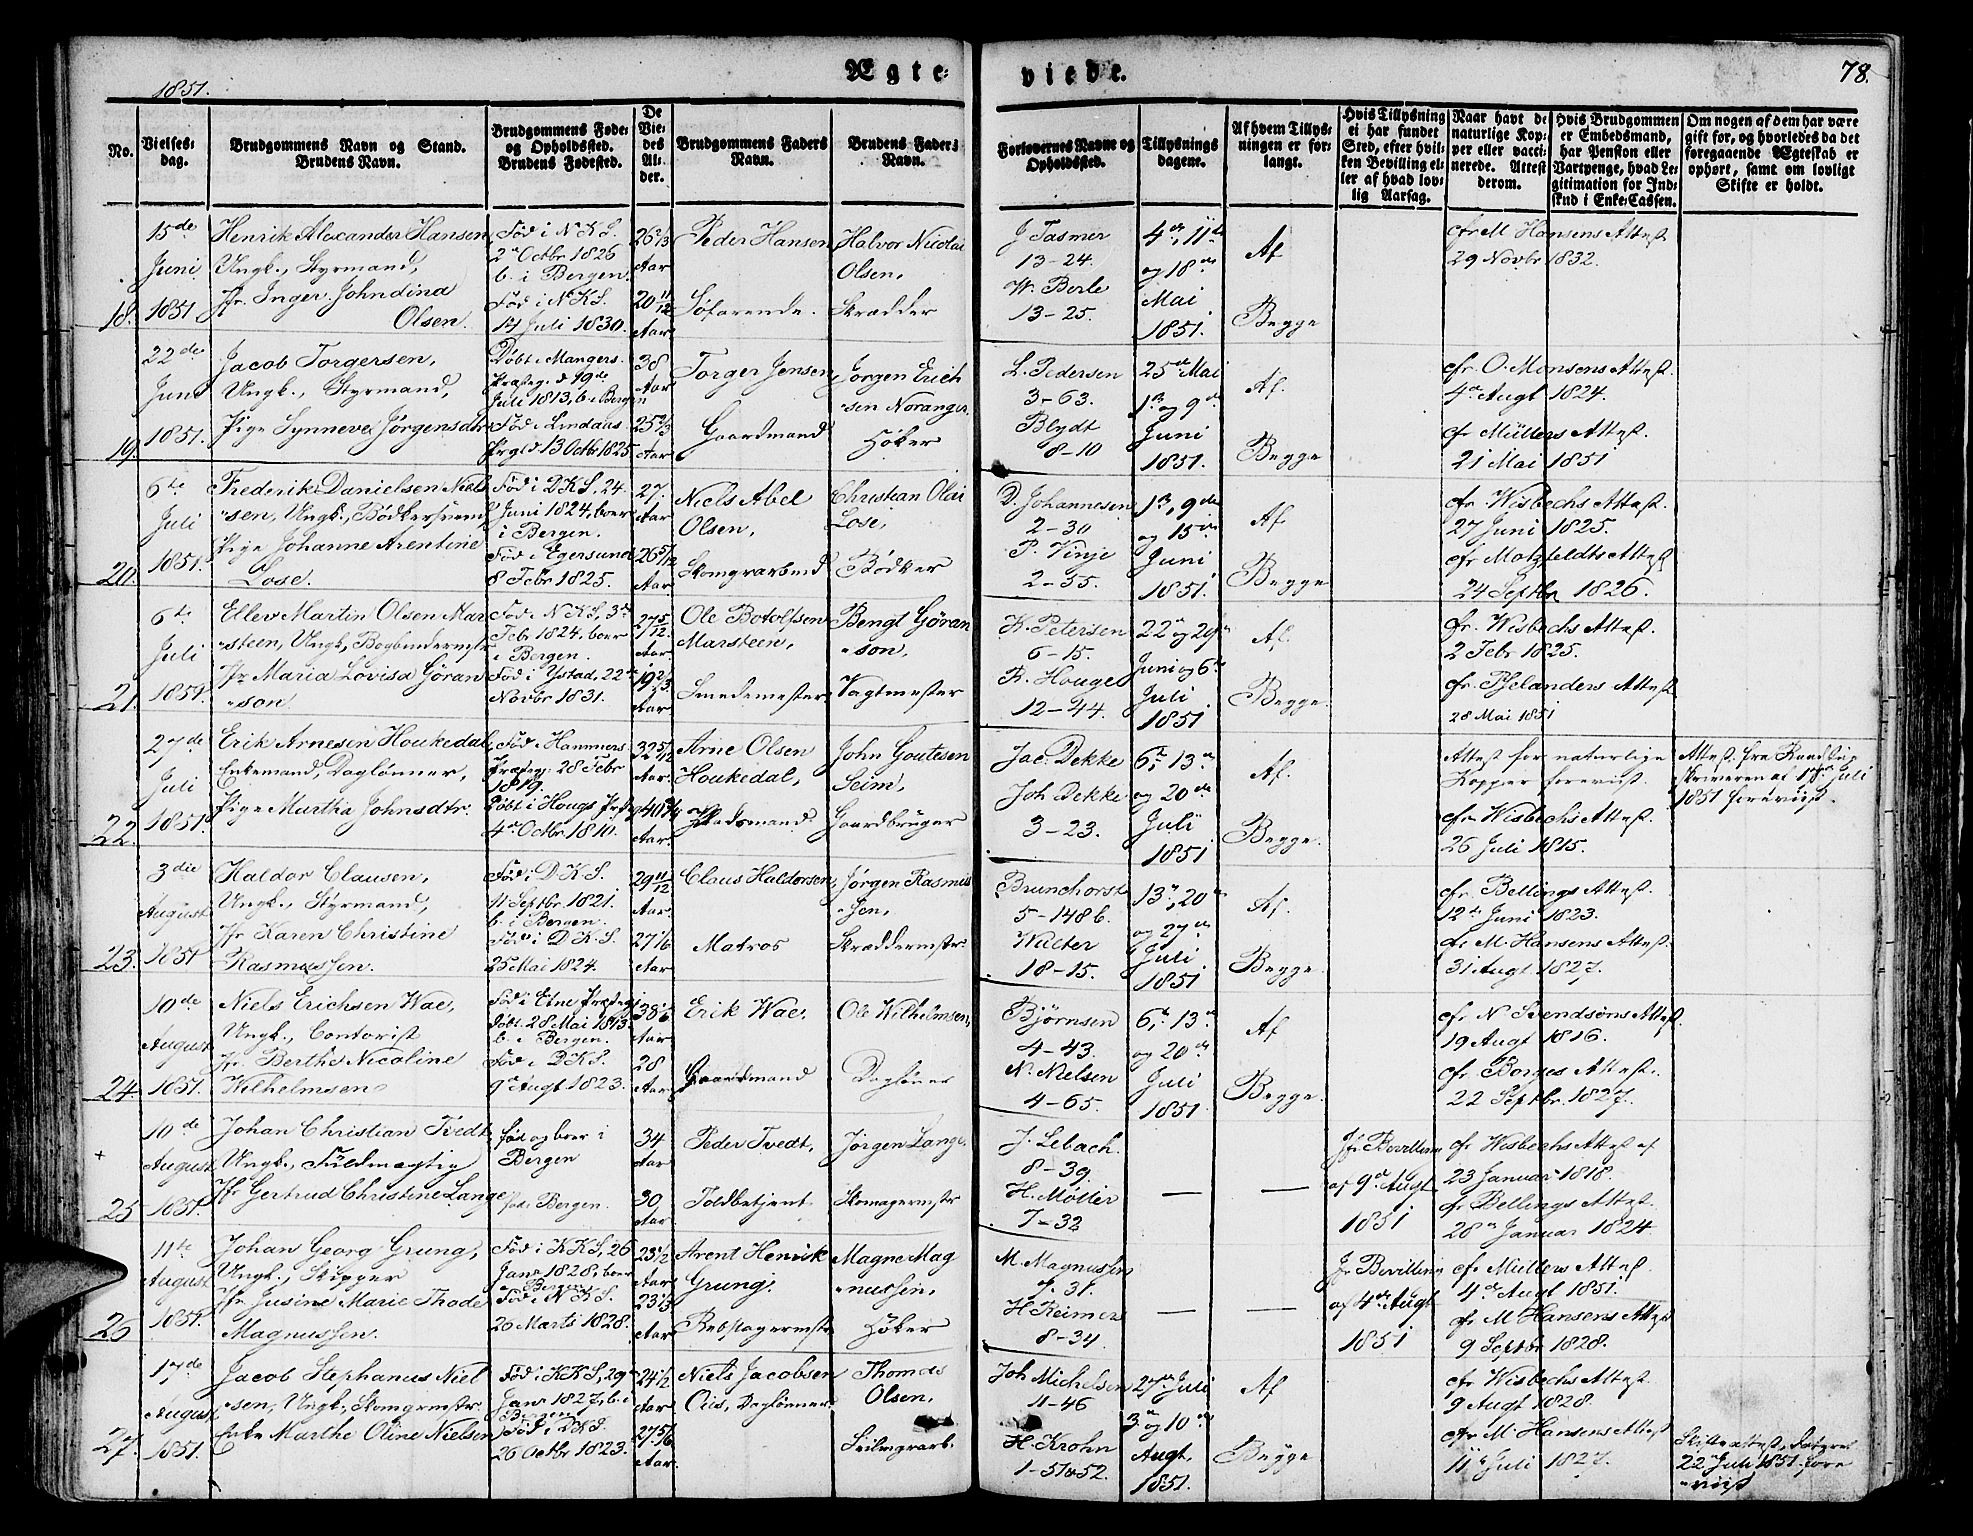 1851.
Ægte-
viede.
78.
No.
Vielses-
dag.
Brudgommens Navn og Stand.
Brudens Navn.
Brudgommens Føde-
og Opholdssted.
Brudens Fødested.
De
Vie-
des
Al-
der.
Brudgommens Faders
Navn.
Brudens Faders
Navn.
Forlovernes Navne og
Opholdssted.
Tillysnings
dagene.
Af hvem Tillys-
ningen er for-
langt.
Hvis Tillysning
ei har fundet
Sted, efter hvil-
ken Bevilling el-
ler af hvad lov-
lig Aarsag.
Naar havt de
naturlige Kop-
per eller vacci-
nerede. Attest
derom.
Hvis Brudgommen
er Embedsmand,
har Pension eller
Vartpenge, hvad Le-
gitimation for Ind-
skud i Enke-Cassen.
Om nogen af dem har være
gift for, og hvorledes da det
foregaaende Ægteskab er
ophørt, samt om lovligt
Skifte er holdt.
18.
15de
Juni
1851
Henrik Alexander Hansen
Ungk., Styrmand,
Jfr. Inger Johndina
Olsen.
Fød i N.K.S.
2n Octbr 1826
b. i Bergen.
Fød i N.K.S.
14 Juli 1830.
26 2/3
Aar
20 11/12
Aar.
Peder Hansen
Søfarende.
Halvor Nicolai
Olsen,
Skrædder
J Tasmer
13-24.
W. Berle
13-25.
4de, 11te
og 18de
Mai
1851.
Af
Begge
cfr M Hansens Attest
29 Novbr 1832.
19.
22de
Juni
1851.
Jacob Torgersen,
Ungk., Styrmand,
Pige Synneve Jørgensdtr
Døbt i Mangers
Præsteg. d 19de
Juli 1813, b. i Bergen
Fød i Lindaas
Prgld 13 Octbr 1825
38
Aar
25 2/3
Aar
Torger Jensen
Gaardmand
Jørgen Erich
"sen Noranger.
Høker
L. Pedersen
3-63.
Blydt
8-10
25de Mai
1ste og 9de
Juni
1851.
Af.
Begge
cfr O. Monsens Attest.
4de Augt 1824.
cfr Müllers Attest.
21 Mai 1851
20.
6te
Juli
1851.
Frederik Danielsen Niels
"sen, Ungk., Bødkersvend
Pige Johanne Arentine
Lose.
Fød i D.K.S, 24.
Juni 1824, boer
i Bergen.
Fød i Egersund
8 Febr 1825.
27
Aar
26 5/12
Aar
Niels Abel
Olsen,
Skomgrarbeid
Christian Olai
Lose,
Bødker
D. Johannesen
2-30
P. Vinje
2-55.
1ste, 9de
og 15de
Juni
1851.
Af.
Begge
cfr Wisbechs Attest.
27 Juni 1825.
cfr Motzfeldts Attest
24 Septbr 1826.
21.
6te
Juli
1851.
Ellev Martin Olsen Mar
"steen, Ungk, Bogbindermstr
Jfr Maria Lovisa Gøran
"son
Fød i N.K.S, 3de
Feb 1824, boer
i Bergen.
Fød i Ystad, 22de
Novbr 1831.
27 5/12.
Aar.
19 2/3
Aar.
Ole Botolfsen
Marsteen,
Smedemester.
Bengt Gøran
"son,
Vagtmester
K. Petersen
6-15.
R. Houge
12-44.
22de og 29de
Juni og 6te
Juli
1851
Af.
Begge.
cfr. Wisbechs Attest.
2 Febr 1825.
cfr. Attest
28 Mai 1851
22.
27de
Juli
1851.
Erik Arnesen Houkedal,
Enkemand, Daglønner,
Pige Martha Johnsdtr.
Fød i Hammers
Præsteg: 28 Febr
1819.
Døbt i Hougs Prstg
4de Octbr 1810.
32 5/12
Aar.
40 3/4
Aar.
Arne Olsen
Houkedal,
Pladsmand
John Goutesen
Seim,
Gaardbruger
Jac. Dekke
Joh Dekke
3-23.
6te, 13de
og 20de
Juli
1851
Af.
Begge.
Attest for naturlige
Kopper foreviist.
cfr Wisbechs Attest.
26 Juli 1815.
Attest fra
skriveren af Juli
1851 foreviist.
23.
3die
August
1851
Haldor Clausen,
Ungk., Styrmand,
Jfr Karen Christine
Rasmussen.
Fød i D.K.S.
11 Septbr 1821.
b. i Bergen.
Fød i D.K.S.
25 Mai 1824.
29 11/12
Aar.
27 1/6
Aar
Claus Haldorsen,
Matros
Jørgen Rasmus
"sen,
Skræddermstr.
Brunchorst
5-148 b.
Walter
18-15.
13de, 20de
og 27de
Juli
1851
Af.
Begge.
cfr. Bellings Attest.
12te Juni 1823.
cfr M. Hansens Attest.
31 Augt 1827.
24.
10de
August
1851.
Niels Erichsen Wae,
Ungk., Contorist
Jfr. Berthe Nicoline
Wilhelmsen
Fød i Etne Præsteg:
Døbt 28 Mai 1813.
b. i Bergen.
Fød i D.K.S.
9de Augt 1823.
38 1/6
Aar
28
Aar
Erik Wae,
Gaardmand
Ole Wilhelmsen,
Dagløner
Bjørnsen
4-43.
N. Nielsen
4-65.
6te, 13de
og 20de
Juli
1851
Af
Begge.
cfr N Svendsøns Attest.
19 Augt 1816.
cfr Borges Attest.
22 Septbr. 1827.
+
25
10de
August
1851.
Johan Christian Tvedt,
Ungk., Fuldmægtig
Jfr Gertrud Christine Lange
fød og boer i
Bergen
fød i Bergen.
34
Aar
30
Aar
Peder Tvedt,
Toldbetjent
Jørgen Lange,
Skomagermstr
J. Lebach
8-39.
H. Møller
7-32
Jfr Bevilling
af 9de Augt
1851
cfr. Wisbechs Attest af
23 Januar 1818.
cfr Bellings Attest.
28de Januar 1824.
26
11te
August
1851.
Johan Georg Grung,
Ungk., Skipper
Jfr Jusine Marie Thode
Magnussen.
Fød i K.K.S, 26
Jan 1828, boer
i Bergen
Fød i N.K.S.
26 Marts 1828.
23 1/2
Aar
23 1/3
Aar
Arent Henrik
Grung.
Rebslagermstr
Magne Mag
"nussen,
Høker
M. Magnussen
9-31.
H Reimers
8-34.
Jfr Bevilling
af 4de Augt
1851
cfr Müllers Attest
4de Augt 1851.
cfr M Hansens Attest
9 Septbr 1828.
27.
17de
August
1851.
Jacob Stephanus Niel
"sen, Ungk., Skomgrmstr.
Enke Marthe Oline Nielsen
Fød i K.K.S, 29de
Jan 1827, b. i
Bergen
Fød i D.K.S.
26 Octbr 1823.
24 1/2
Aar
27 5/6
Aar.
Niels Jacobsen
Daglønner.
Thomas
Olsen,
Seilmgrarb.
Joh Michelsen
11-46
H. Krohn
1-51&52.
27de Juli
3de og 10de
Augt,
1851.
Af
Begge
cfr Wisbechs Attest.
9 Augt 1828.
cfr M. Hansens Attest
11te Juli 1827.
Skifteattest, dateret
22 Juli 1851, fore
"viist